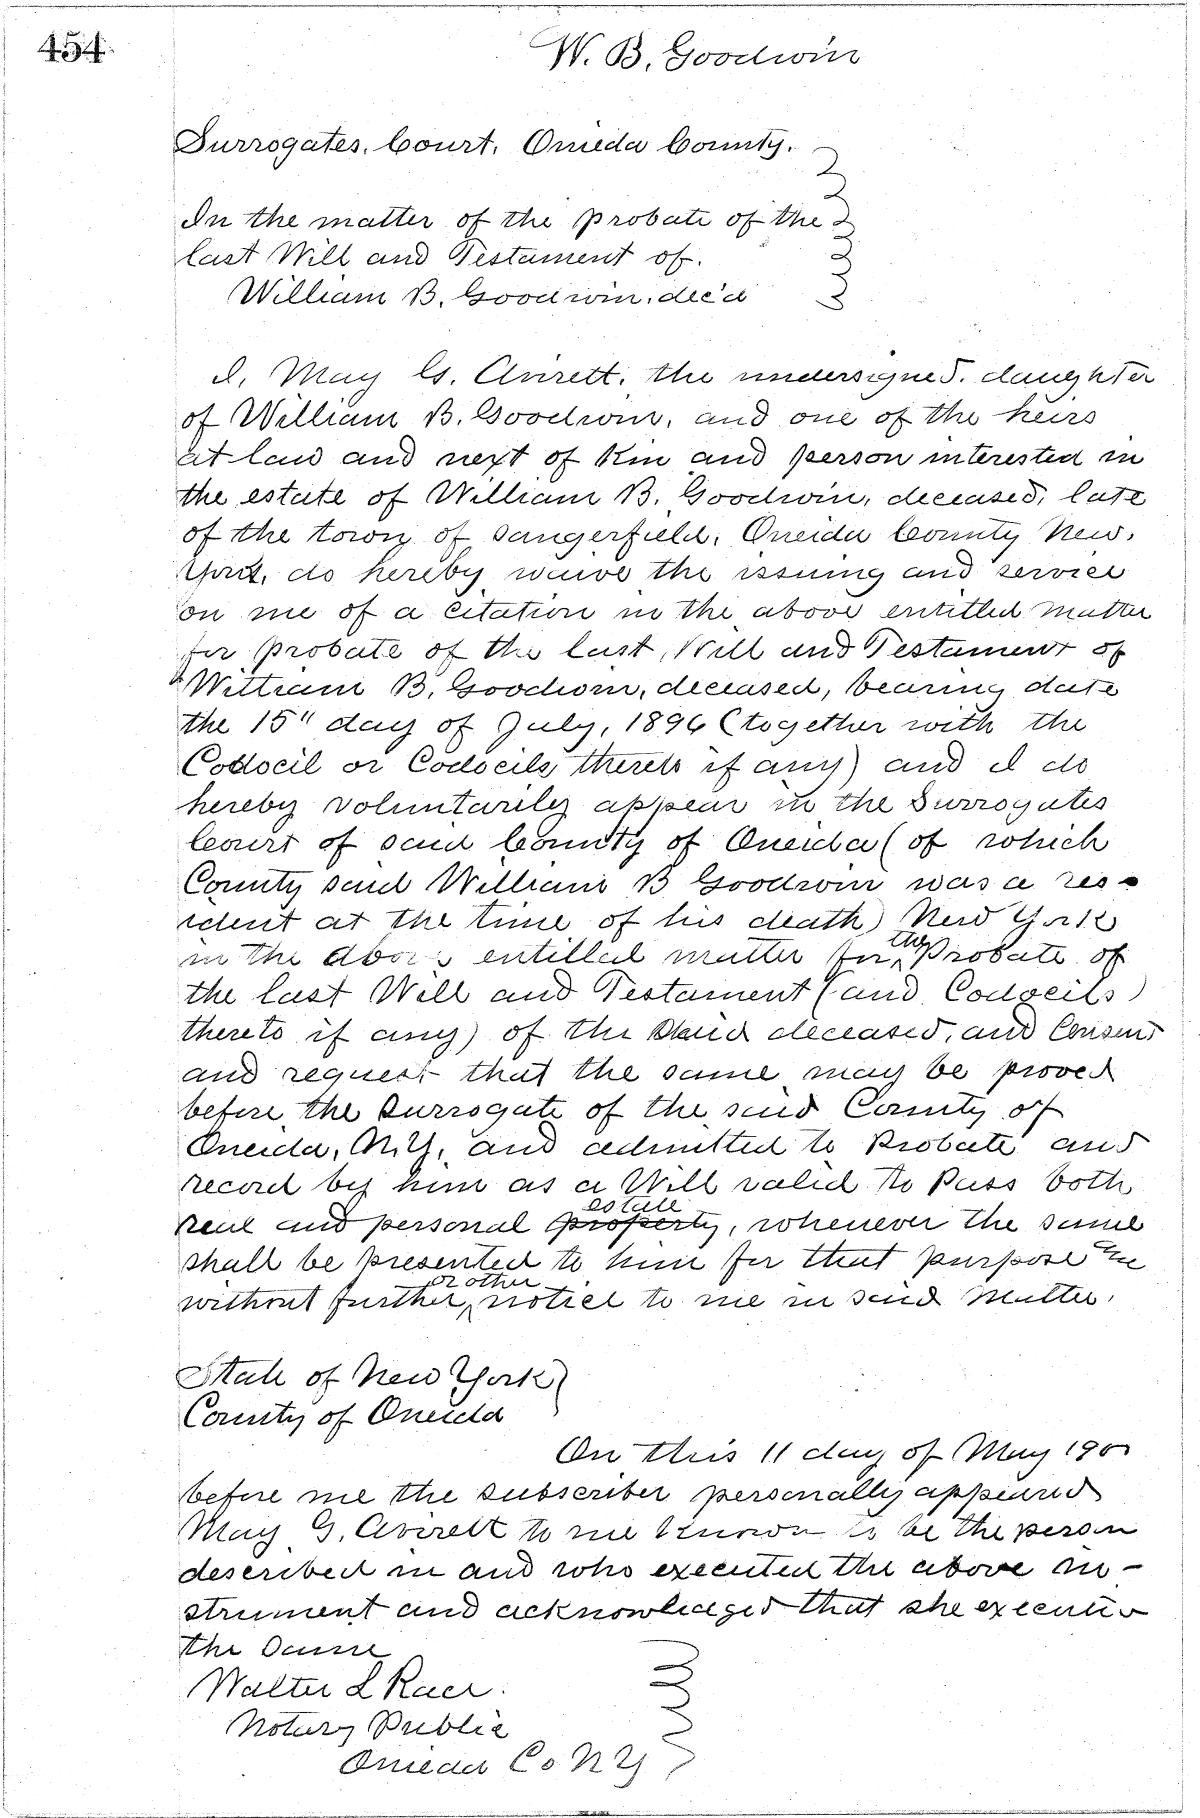 454
W. B. Goodwin
Surrogates. Court. Oneida County.
In the matter of the probate of the
last Will and Testament of.
William B. Goodwin. dec'd
I, May G. Averett. the undersigned. daughter
of William B. Goodwin, and one of the heirs
at law and next of Kin and person interested in
the estate of William B. Goodwin, deceased, late
of the town of Sangerfield, Oneida County New.
York, do hereby waive the issuing and service
on me of a citation in the above entitled matter
for probate of the last, Will and Testament of
William B. Goodwin, deceased, bearing date
the 15" day of July, 1896 (together with the
Codocil or Codocils thereto if any) and I do
hereby voluntarily appear in the Surrogates
Court of said County of Oneida (of which
County said William B Goodwin was a res-
ident at the time of his death) New York
in the above entitled matter for the Probate of
the last Will and Testament (and Codocils)
thereto if any) of the said deceased, and Consent
and request that the same may be proved
before the Surrogate of the said County of
Oneida, N.Y, and admitted to Probate and
record by him as a Will valid to Pass both
real and personal property estate, whenever the same
shall be presented to him for that purpose
without further or other notice to me in said Matter.
State of New York
County of Oneida
On this 11 day of May 190
before me the subscriber personally appeared
May G. Averett to me known to be the person
described in and who executed the above in-
strument and acknowledged that she executed
the Same
Walter L Racr.
Notary Public
Oneida Co N Y